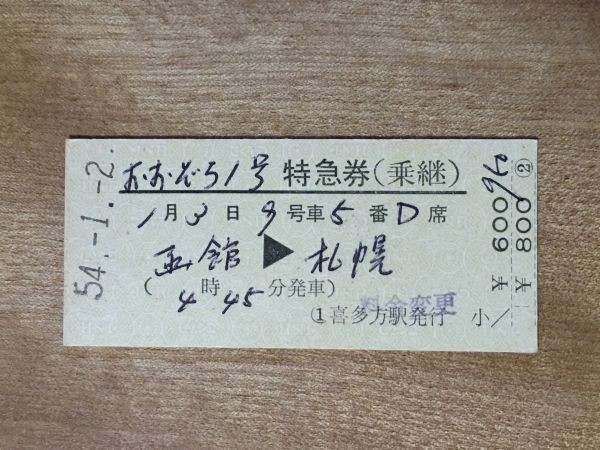 54.-1.-2.
おおぞら1号 特急券(乗継)
1月3日9号車5番D席
函館▶札幌
(4時45分発車)
料金変更
①喜多方駅発行 小
¥600
¥800 ②